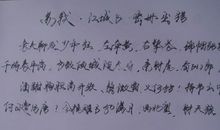 苏轼·江城子 密州出猎
老夫聊发少年狂，左牵黄，右擎苍，锦帽貂裘，
千骑卷平冈。为报倾城随太守，亲射虎，看孙郎。
酒酣胸胆尚开张，鬓微霜，又何妨！持节云中，
何日遣冯唐？会挽雕弓如满月，西北望，射天狼。